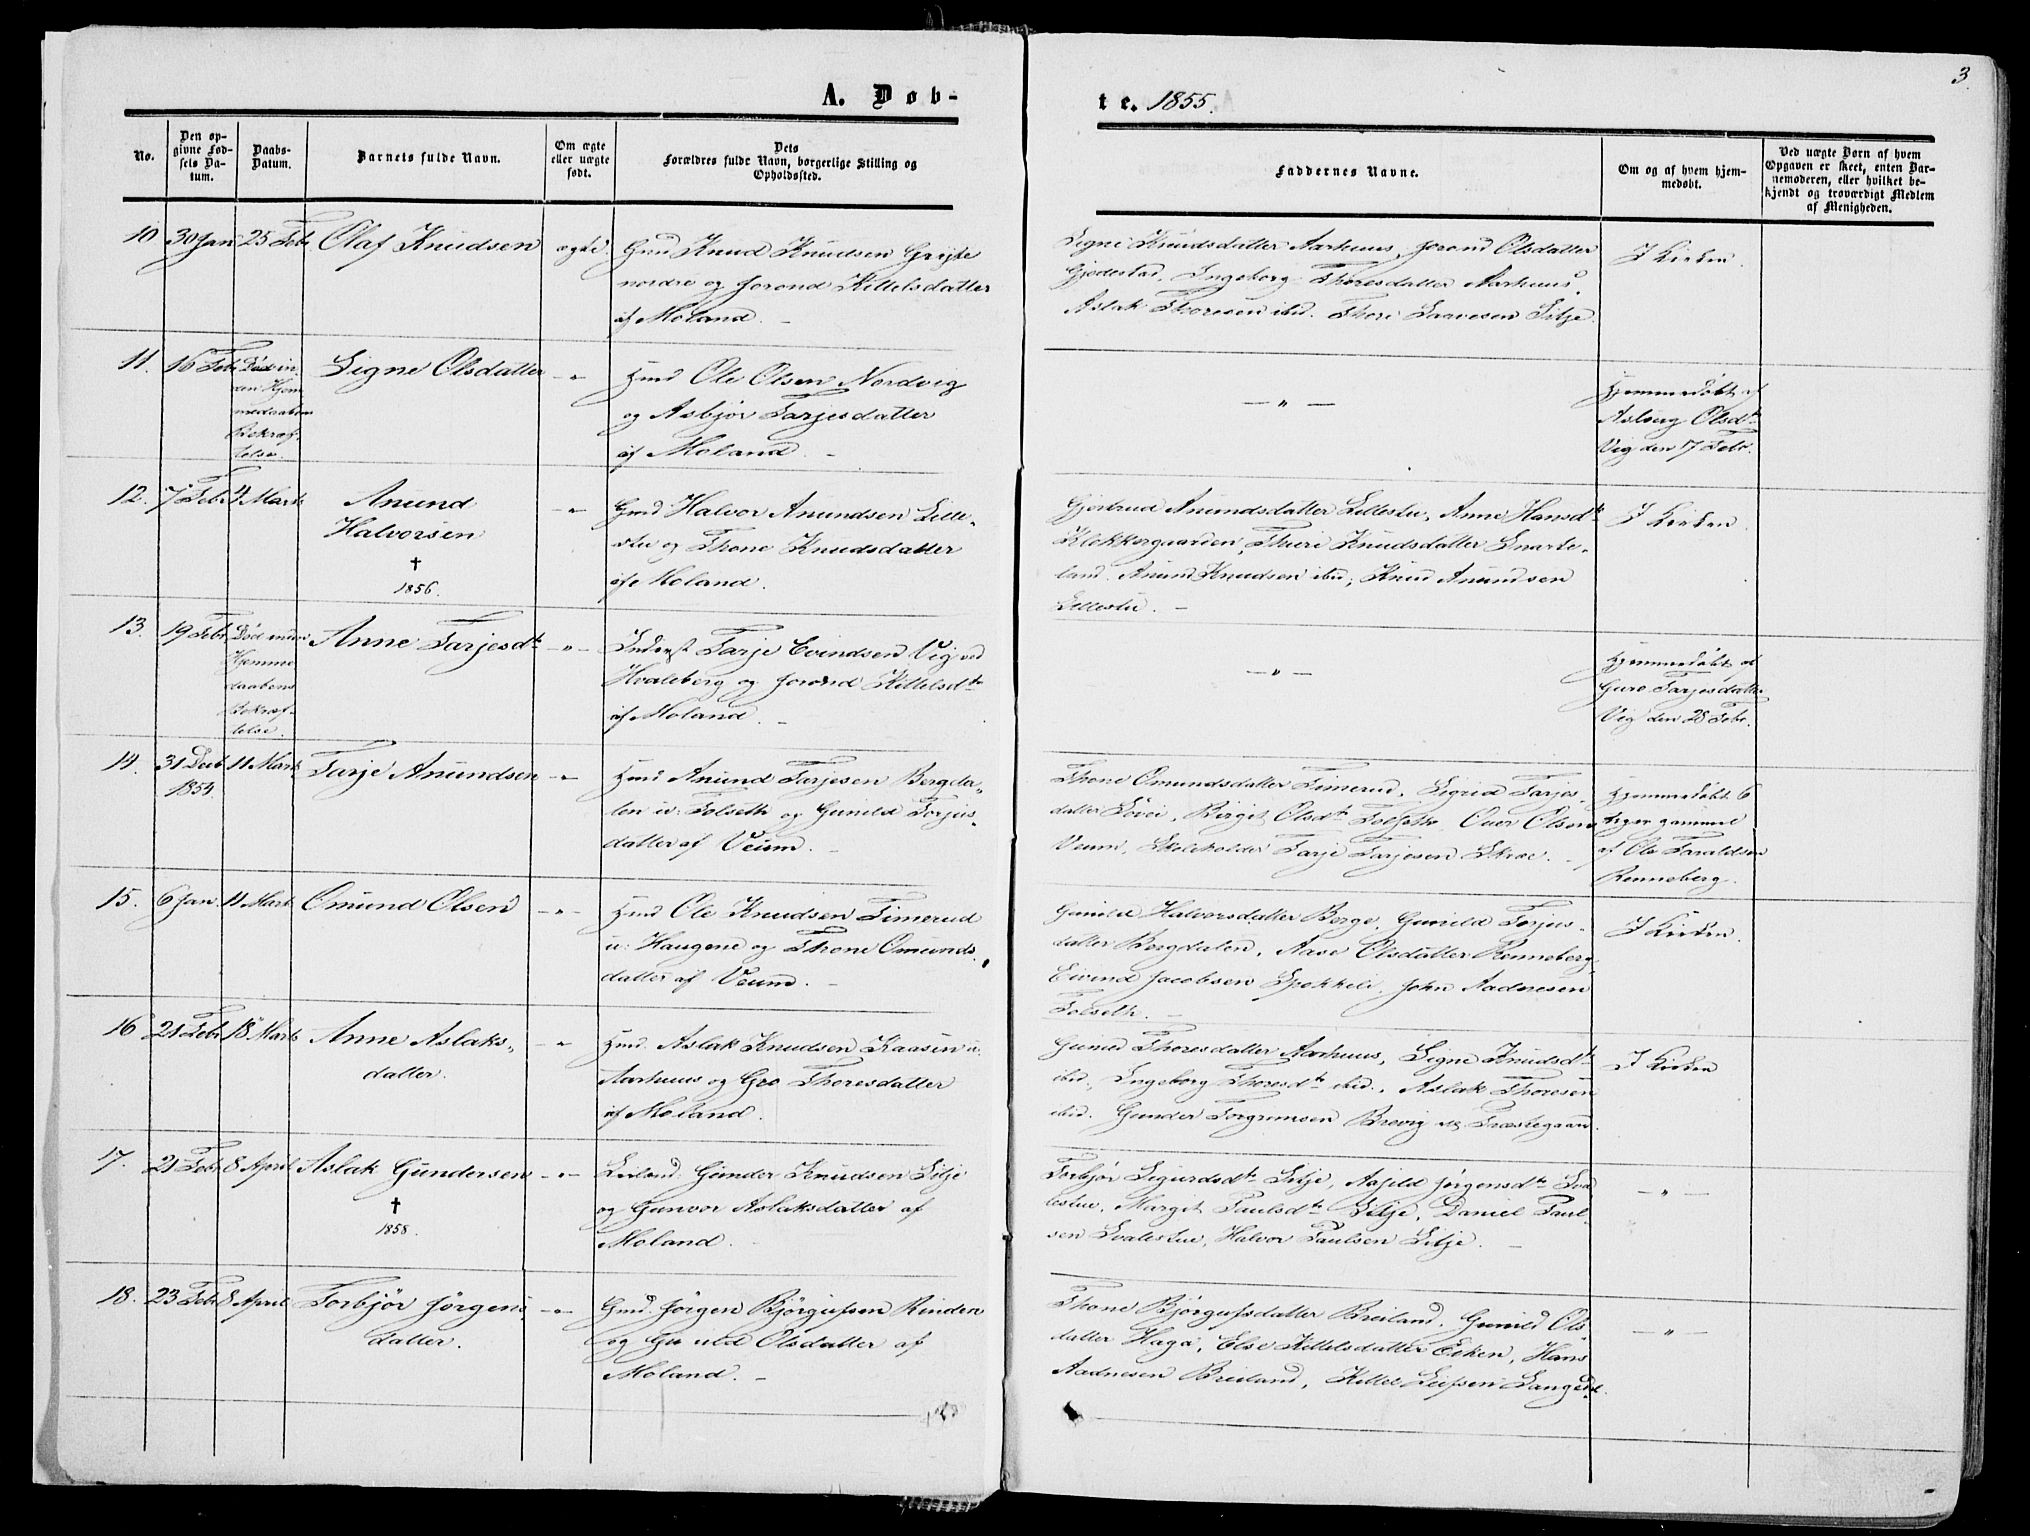 3.
A. Døb-
te. 1855.
No.
Den op-
givne Fød-
sels Da-
tum.
Daabs-
Datum.
Barnets fulde Navn.
Om ægte
eller uægte
født.
Dets
Forældres fulde Navn, borgerlige Stilling og
Opholdssted.
Faddernes Navne.
Om og af hvem hjem-
medøbt.
Ved uægte Børn af hvem
Opgaven er skeet, enten Bar-
nemoderen, eller hvilket be-
kjendt og troværdigt Medlem
af Menigheden.
10 30 Jan 25 Feb Olaf Knudsen ægte. Gmd Knud Knudsen Grytte
nordre og Jorond Kittelsdatter
af Moland. -
Signe Knudsdatter Aarhuus, Jorond Olsdatter
Gjedestad, Ingeborg Thoresdatter Aarhuus,
Aslak Thoresen ibid. Thore Saavesen Lilje.
I Kirken.
11. 16 Feb Død in-
den Hjem-
medaabens
Bekræf-
telse.
Signe Olsdatter - " - Hmd Ole Olsen Nordvig
og Asbjør Tarjesdatter
af Moland. -
- " -
Hjemmedøbt af
Aslaug Olsdtr
Vig den 17 Febr.
12. 7 Feb 4 Marts Anund
Halvorsen
†
1856.
- " - Gmd Halvor Anundsen Lille-
stu og Thone Knudsdatter
af Moland.
Gjertrud Anundsdatter Lillestu, Anne Hansdtr
Klokkergaarden, Thuri Knudsdatter Snarte-
land. Anund Knudsen ibid; Knud Anundsen
Lillestu. -
I Kirken.
13. 19 Feb Død inden
Hjemme
daabens
Bekræf-
telse.
Anne Tarjesdtr - " - Inderst Tarje Evindsen Vig ved
Hvaleberg og Jorond Kittelsdtr
af Moland. -
- " -
Hjemmedøbt af
Guro Tarjesdatter
Vig den 28 Febr.
14. 31 Decb
1854.
11 Marts Tarje Anundsen - " - Hmd Anund Tarjesen Bergda-
len u: Folseth og Gunild Torjus-
datter af Veum. -
Thone Omundsdatter Timerud, Sigrid Tarjes-
datter Løvei, Birgit Olsdtr Folseth. Ouer Olsen
Veum, Skoleholder Tarje Tarjesen Skree. -
Hjemmedøbt 6
Uger gammel
af Ole Taraldsen
Renneberg.
15. 6 Jan. 11 Marts Omund Olsen - " - Hmd Ole Knudsen Timerud
u: Haugene og Thone Omunds-
datter af Veum. -
Gunild Halvorsdatter Berge, Gunild Torjus-
datter Bergdalen, Aase Olsdatter Renneberg
Eivind Jacobsen Spokkeli, John Aadnesen
Folseth. -
I Kirken.
16 21 Feb 18 Marts Anne Aslaks-
datter.
- " Hmd. Aslak Knudsen Kaasin u:
Aarhuus og Gro Thoresdatter
af Moland.
Gunild Thoresdatter Aarhuus, Signe Knudsdtr
ibid, Ingeborg Thoresdtr ibid., Aslak Thoresen
ibid. Gunder Torgrimsen Brevig og Præstegaard.
I Kirken
17. 21 Feb 8 April Aslak Gundersen
†
1858.
- " - Leiland: Gunder Knudsen Lilje
og Gunvor Aslaksdatter af
Moland. -
Torbjør Sigurdsdtr Lilje, Aasild Jørgensdtr Sva-
lestue, Margit Paulsdtr Lilje, Daniel Paul-
sen Svalestue, Halvor Paulsen Lilje. -
- " -
18. 23 Feb 8 April Torbjør Jørgens-
datter.
- " - Gmd. Jørgen Bjørgufsen Rinden
og Gunild Olsdatter af
Moland. -
Thone Bjørgufsdatter Breiland. Gunild Ols-
datter Haga, Else Kittelsdatter Eeken, Hans
Aadnesen Breiland, Kittel Leifsen Langed.
- " -